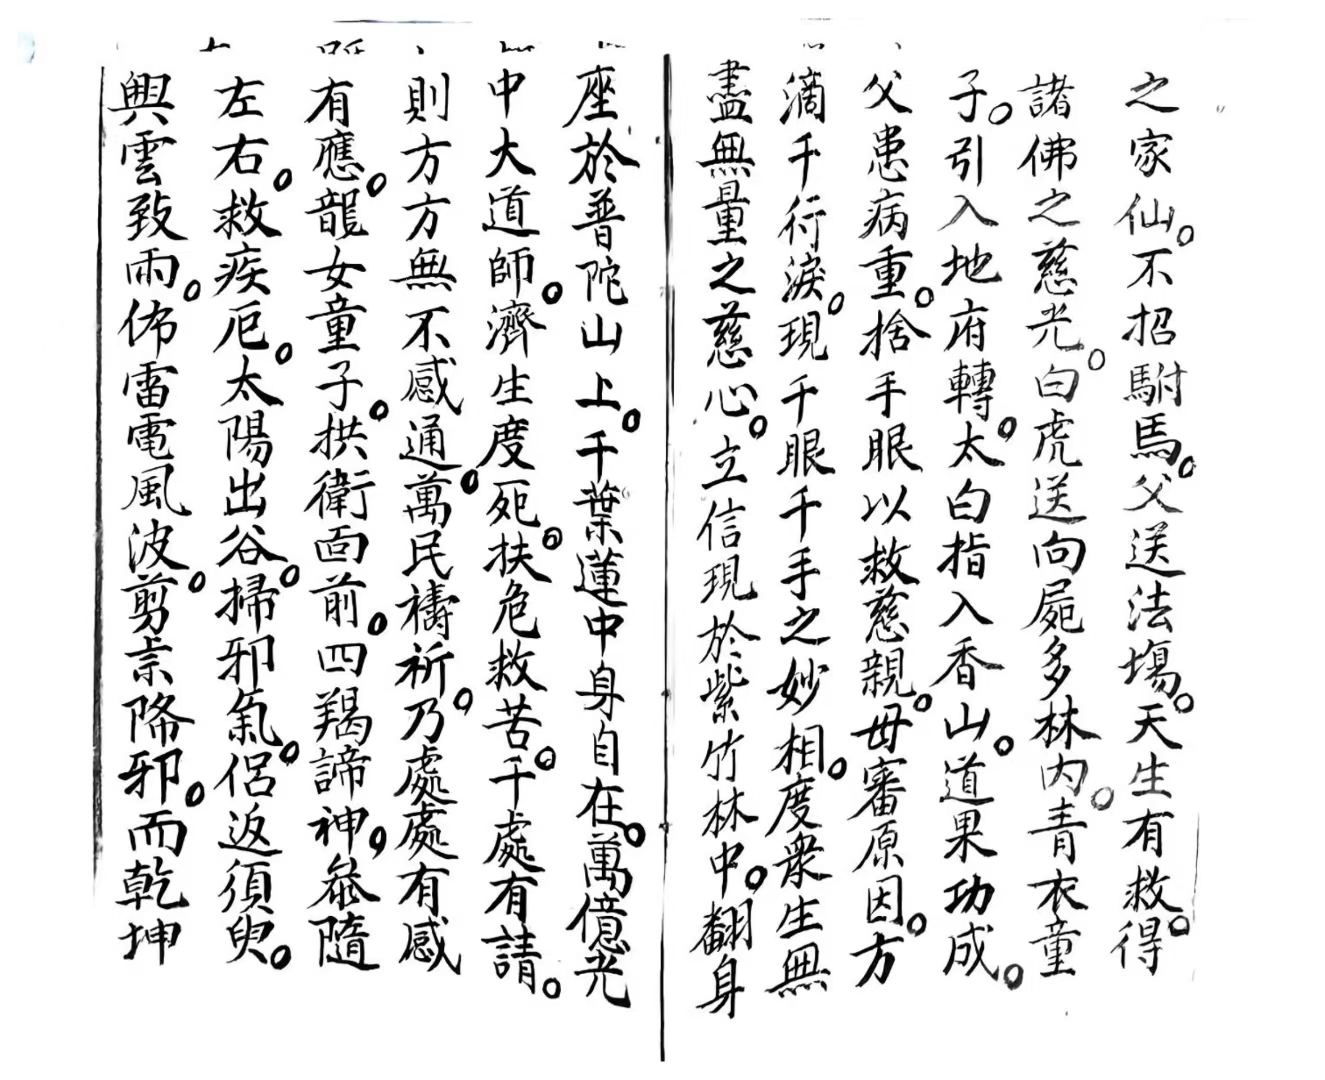 之家仙。不招駙馬。父送法場。天生有救。得
諸佛之慈光。白虎送向屍多林内。青衣童
子。引入地府轉。太白指入香山。道果功成。
父患病重。捨手眼以救慈親。毋審原因。方
滴千行淚。現千眼千手之妙相。度衆生無
盡無量之慈心。立信現於紫竹林中。翻身
座於普陀山上。千葉蓮中身自在。萬億光
中大道師。濟生度死。扶危救苦。千處有請。
則方方無不感通。萬民禱祈。乃處處有感
有應。龍女童子。拱衛面前。四羯諦神。叅隨
左右。救疾厄。太陽出谷。掃邪氣。侶返須臾。
興雲致雨。佈雷電風波。剪祟降邪。而乾坤